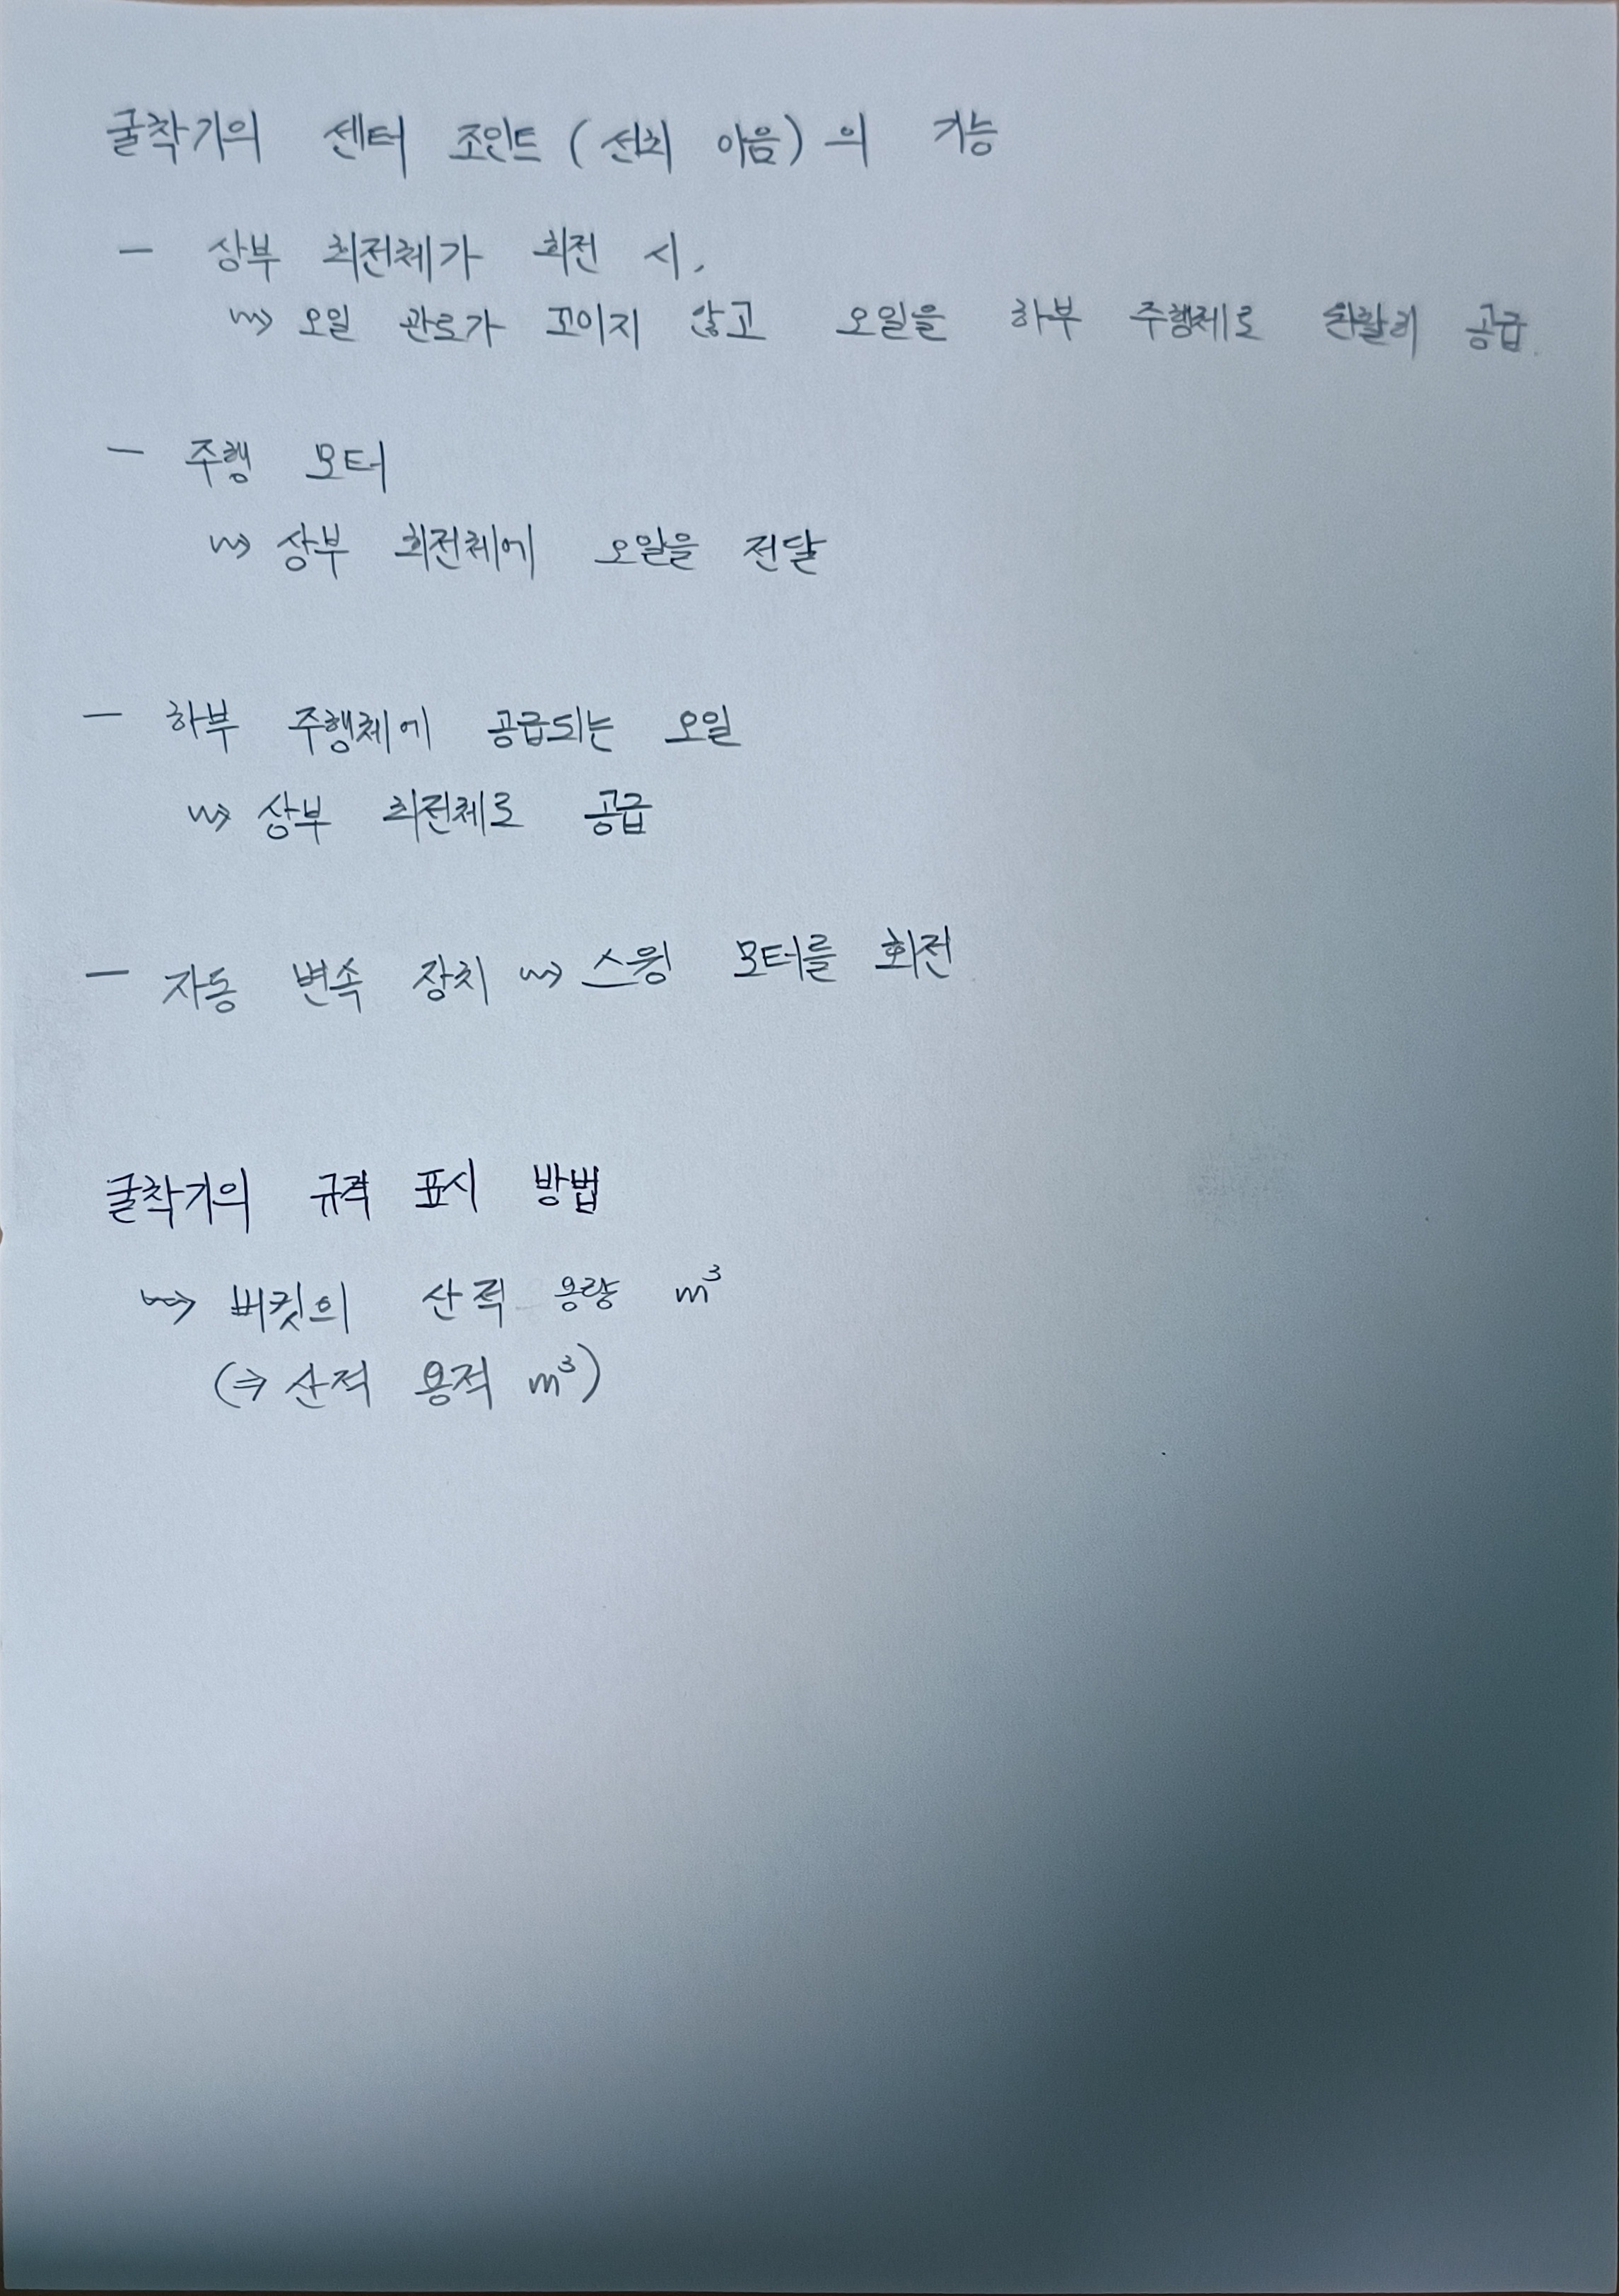 굴착기의 센터 조인트 (선회 이음)의 기능
- 상부 회전체가 회전 시,
⇝ 오일 관로가 꼬이지 않고 오일을 하부 주행체로 원활히 공급.
- 주행 모터
⇝ 상부 회전체에 오일을 전달
- 하부 주행체에 공급되는 오일
⇝ 상부 회전체로 공급
- 자동 변속 장치 ⇝ 스윙 모터를 회전
굴착기의 규격 표시 방법
⇝ 버킷의 산적 용량 m³
(⇒ 산적 용적 m³)